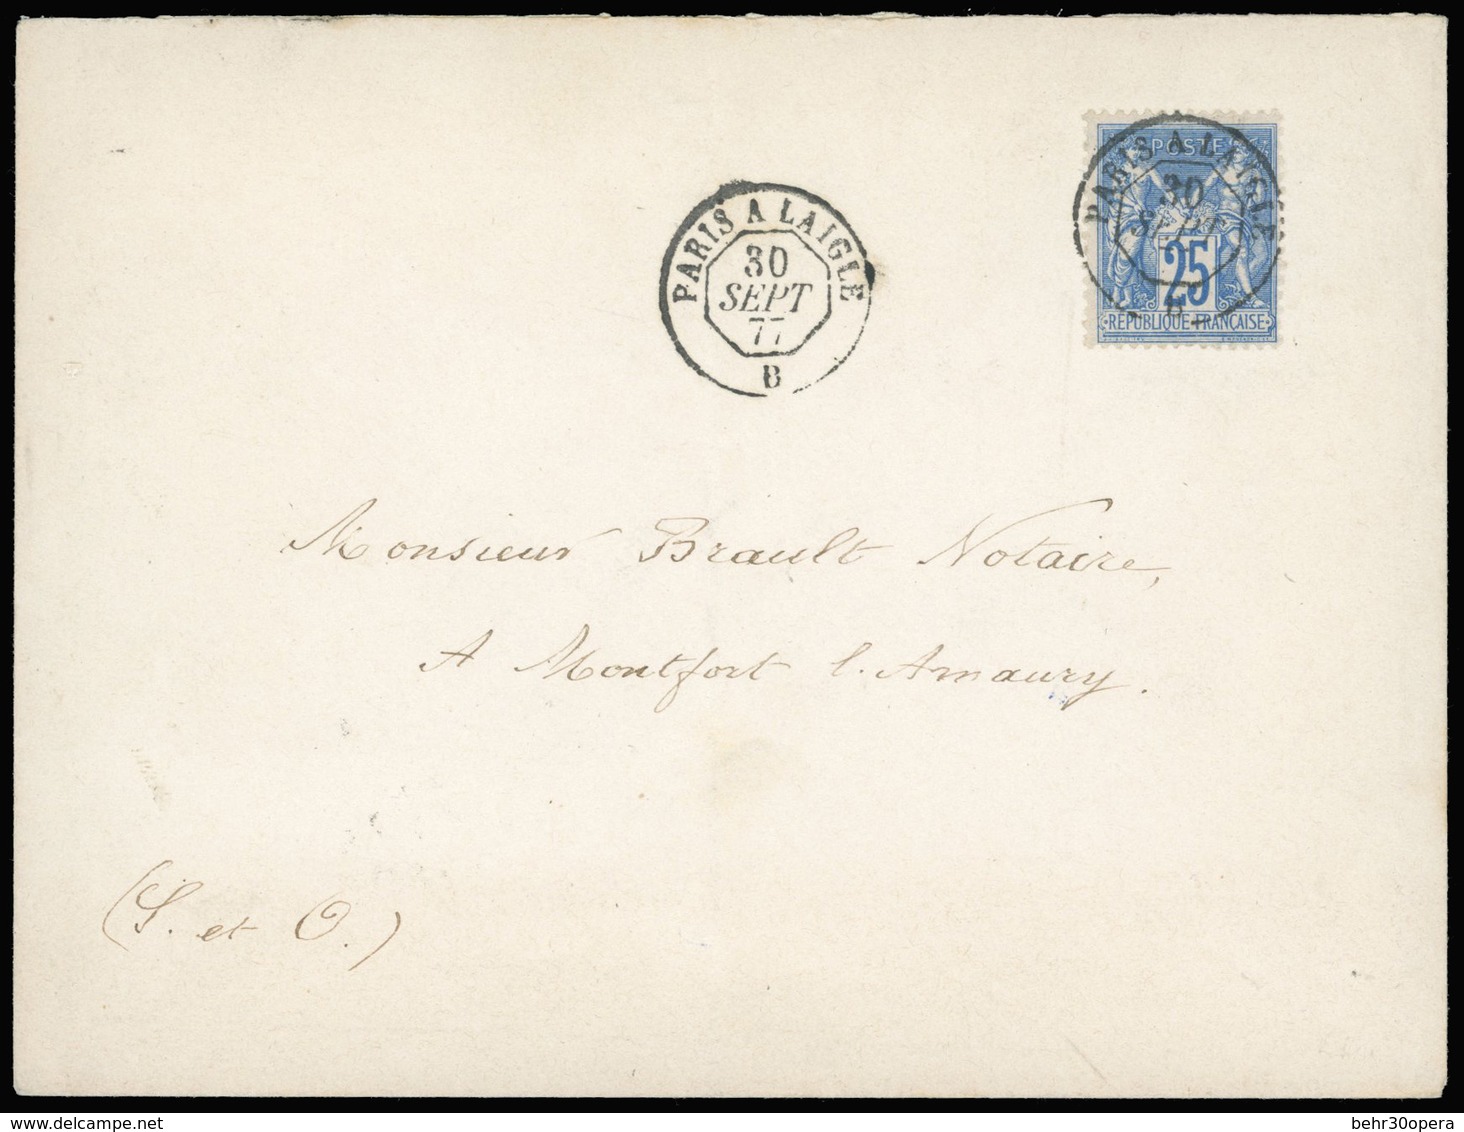 PARIS A LAIGLE
30
SEPT
77
B
POSTE
PARIS A LAIGLE
30
SEPT
25
B
REPUBLIQUE FRANÇAISE
Monsieur Brault Notaire,
A Montfort l. Amaury.
(S. et O.)
www.delcampe.net
behr30opera